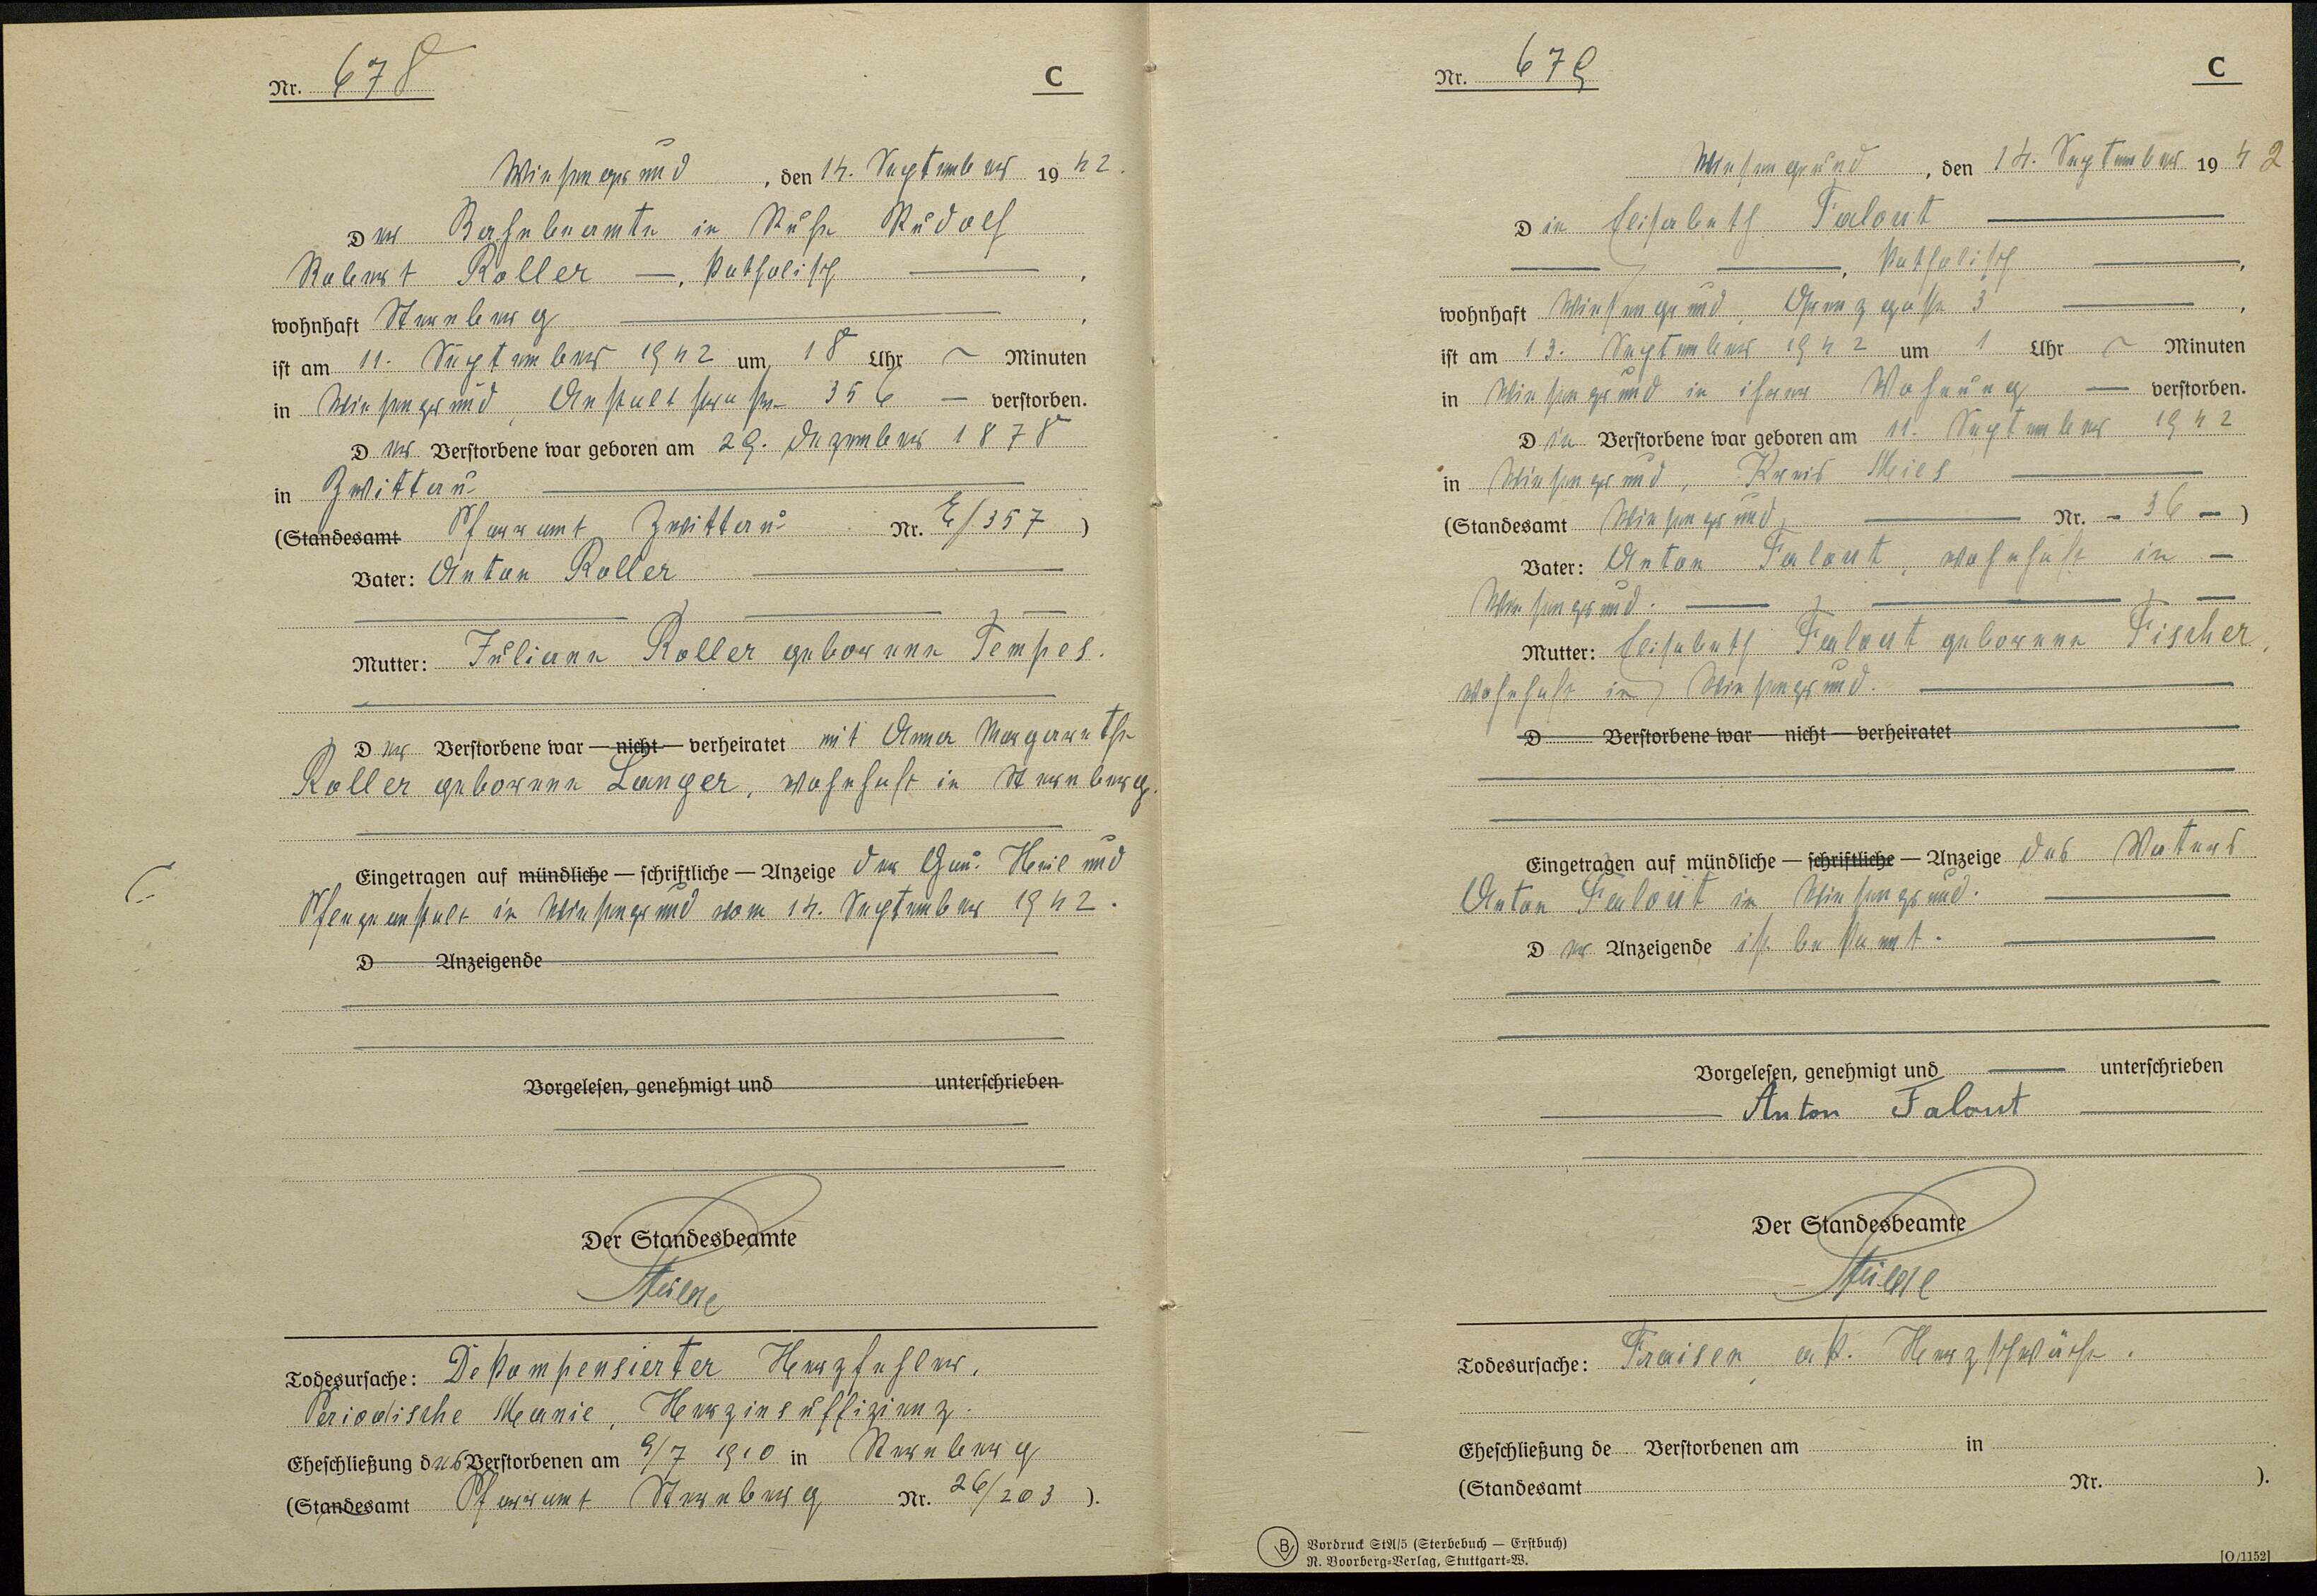 Nr. 678
C
Wiesengrund, den 14. September 1942.
Der Bahnbeamte in Ruhe Rudolf
Robert Roller —, katholisch —,
wohnhaft Sternberg —,
ist am 11. September 1942 um 18 Uhr — Minuten
in Wiesengrund, Anstaltstrasse 356 — verstorben.
Der Verstorbene war geboren am 29. Dezember 1878
in Zwittau —
(Standesamt Pfarramt Zwittau Nr. E/357)
Vater: Anton Roller —
Mutter: Juliane Roller geborene Tempes.
Der Verstorbene war — nicht — verheiratet mit Anna Margarethe
Roller geborene Langer, wohnhaft in Sternberg.
Eingetragen auf mündliche — schriftliche — Anzeige der Gau-Heil und
Pflegeanstalt in Wiesengrund vom 14. September 1942.
D Anzeigende
Vorgelesen, genehmigt und unterschrieben
Der Standesbeamte
Todesursache: Dekompensierter Herzfehler,
Periodische Manie, Herzinsuffizienz.
Eheschließung des Verstorbenen am 9/7 1910 in Sternberg
(Standesamt Pfarramt Sternberg Nr. 26/203).
Nr. 679
C
Wiesengrund, den 14. September 1942
Die Elisabeth Falout —
—, katholisch —,
wohnhaft Wiesengrund, Grenzgasse 3 —,
ist am 13. September 1942 um 1 Uhr — Minuten
in Wiesengrund in ihrer Wohnung — verstorben.
Die Verstorbene war geboren am 11. September 1942
in Wiesengrund, Kreis Mies —
(Standesamt Wiesengrund — Nr. - 36 -)
Vater: Anton Falout, wohnhaft in —
Wiesengrund. —
Mutter: Elisabeth Falout geborene Fischer,
wohnhaft in Wiesengrund. —
D Verstorbene war — nicht — verheiratet
Eingetragen auf mündliche — schriftliche — Anzeige des Vaters
Anton Falout in Wiesengrund. —
Der Anzeigende ist bekannt. —
Vorgelesen, genehmigt und — unterschrieben
Anton Falout
Der Standesbeamte
Todesursache: Fraisen, ak. Herzschwäche.
Eheschließung de Verstorbenen am in
(Standesamt Nr. ).
B Vordruck StA/5 (Sterbebuch — Erstbuch)
N. Voorberg-Verlag, Stuttgart-W.
[O/1152]